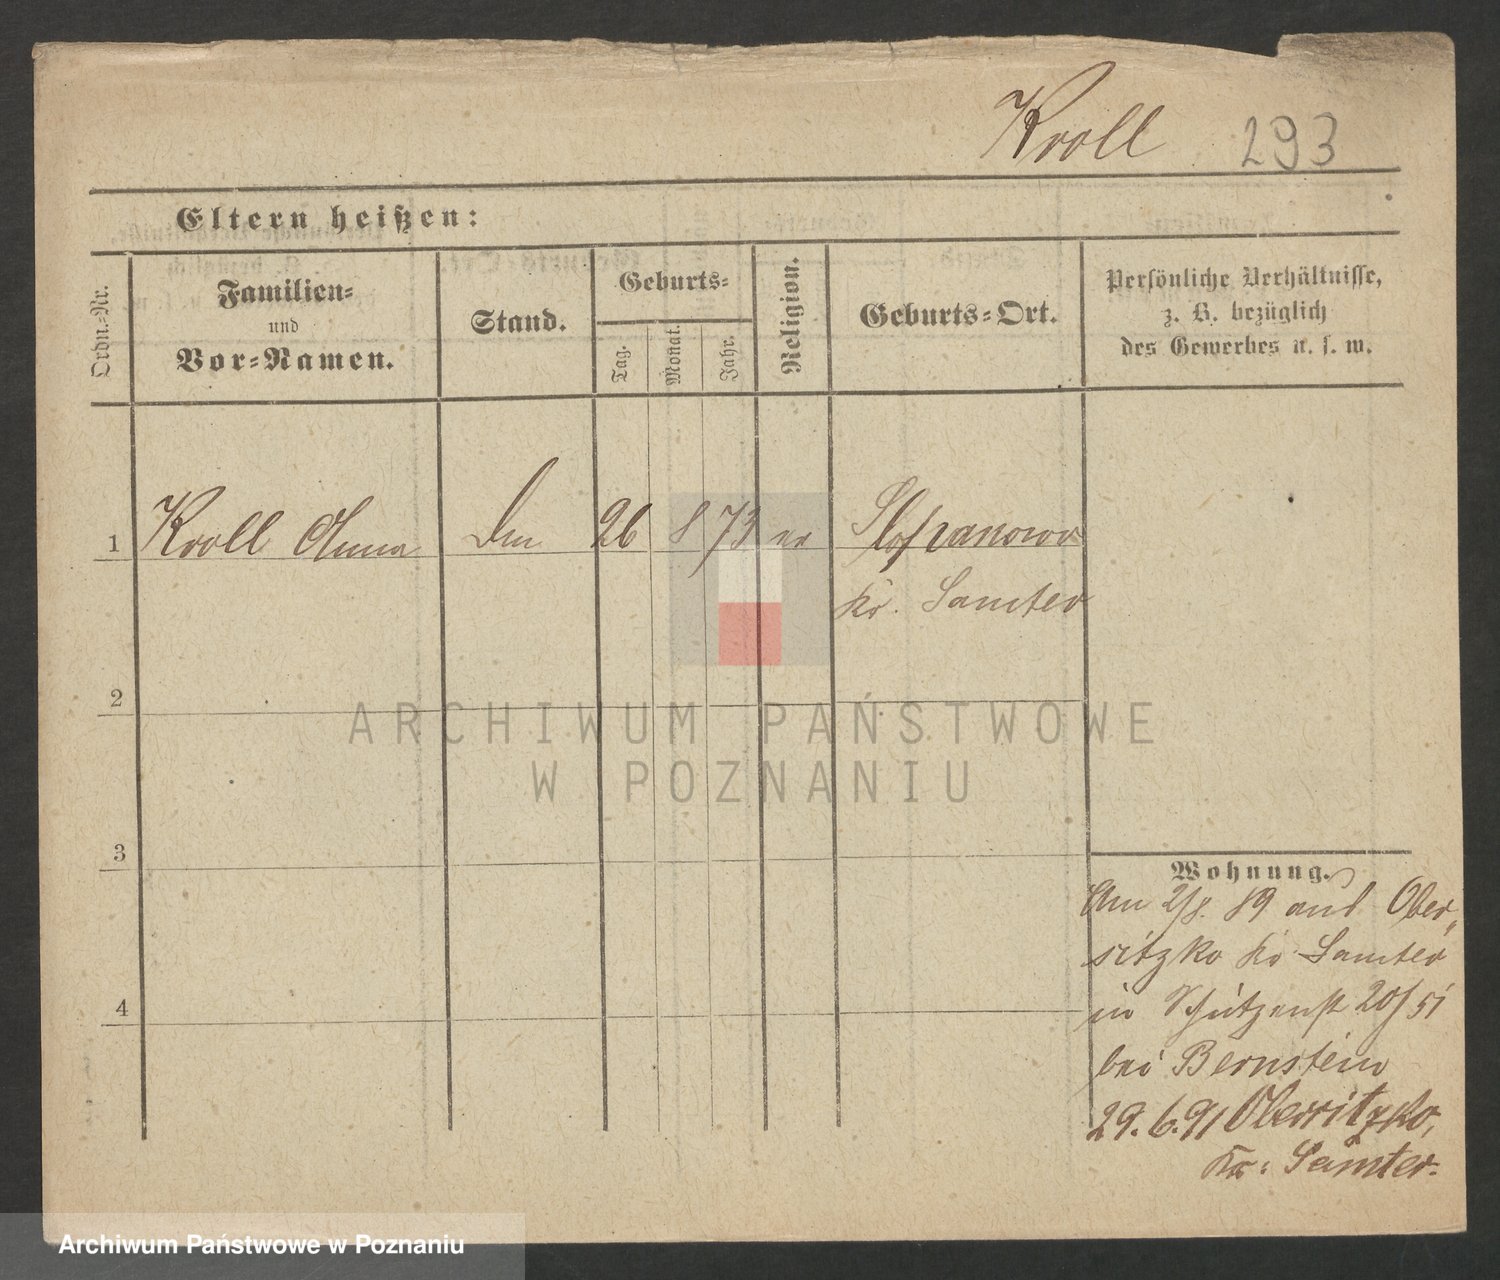 Kroll 293
Eltern heißen:
Ordn.-Nr.
Familien-
und
Vor-Namen.
Stand.
Geburts-
Tag.
Monat.
Jahr.
Religion.
Geburts-Ort.
Persönliche Verhältnisse,
z. B. bezüglich
des Gewerbes u. s. w.
1 Kroll Anna 26 8 73
Kr. Samter
2
ARCHIWUM PAŃSTWOWE
W POZNANIU
3
4
Wohnung.
Am 2/8. 89 aus Ober-
sitzko Kr Samter
in Schützenst 20/51
bei Bernstein
29. 6. 91 Obersitzko,
Kr: Samter.
Archiwum Państwowe w Poznaniu